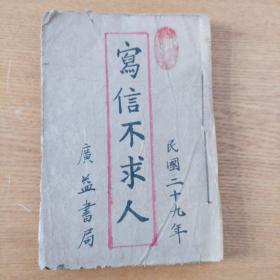 民國二十九年
寫信不求人
廣益書局